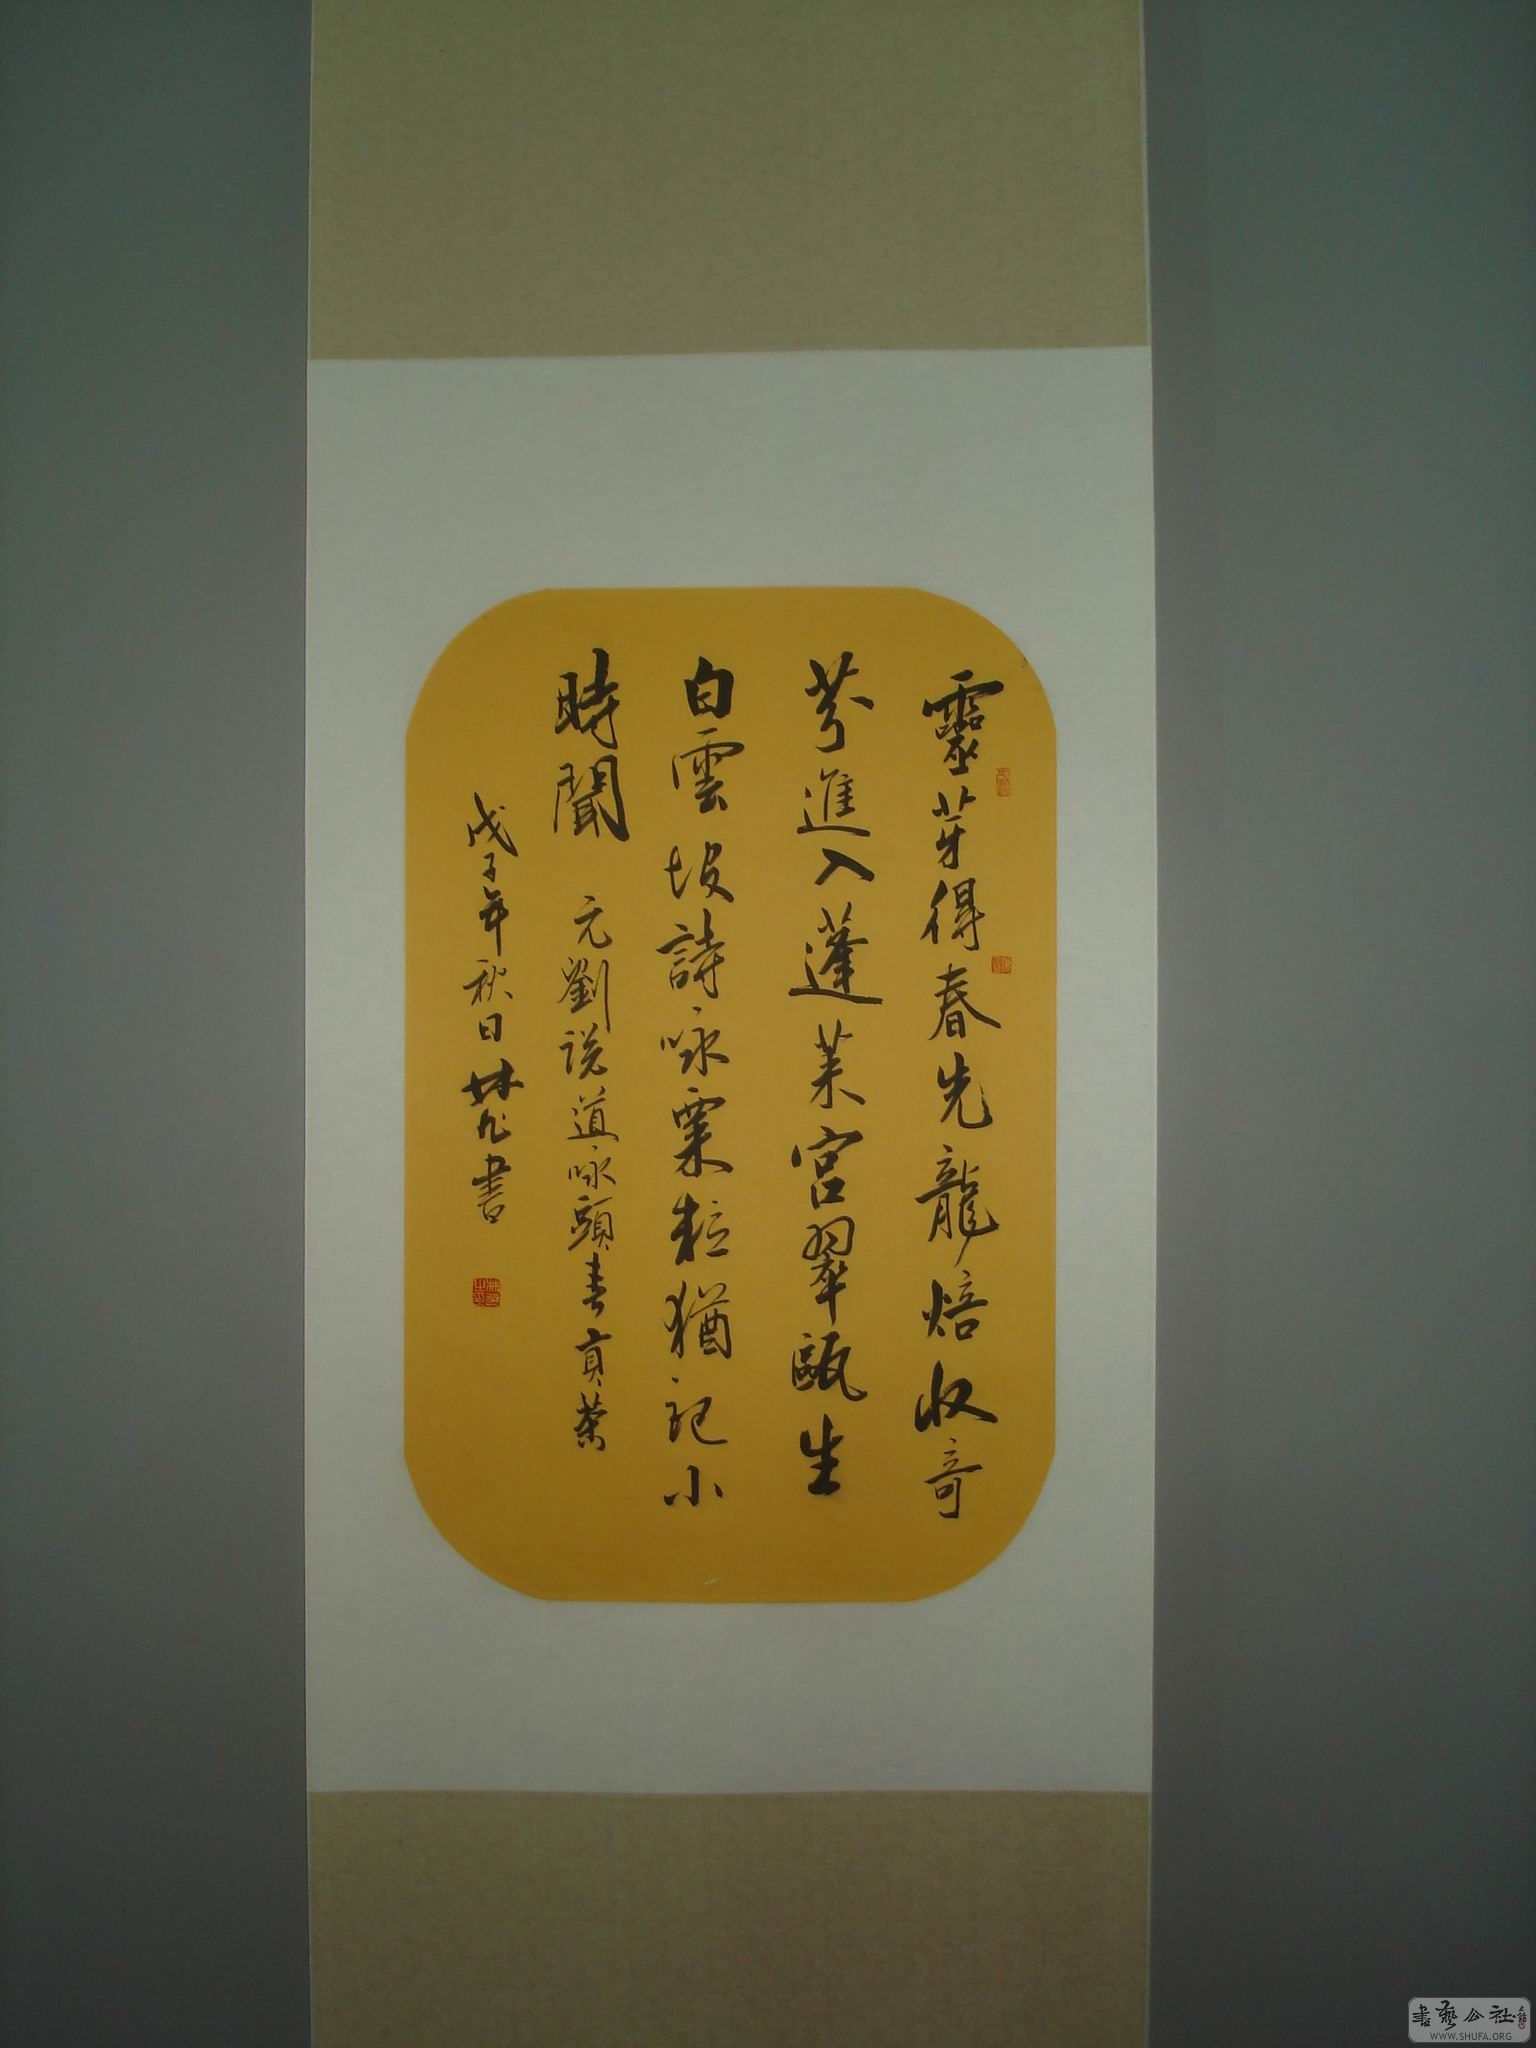 靈芽得春先龍焙收奇
芬進入蓬萊宮翠甌生
白雲坡詩咏粟粒猶記小
時聞 元劉説道咏頭春貢茶
戊子年秋日林 書
書藝公社
WWW.SHUFA.ORG